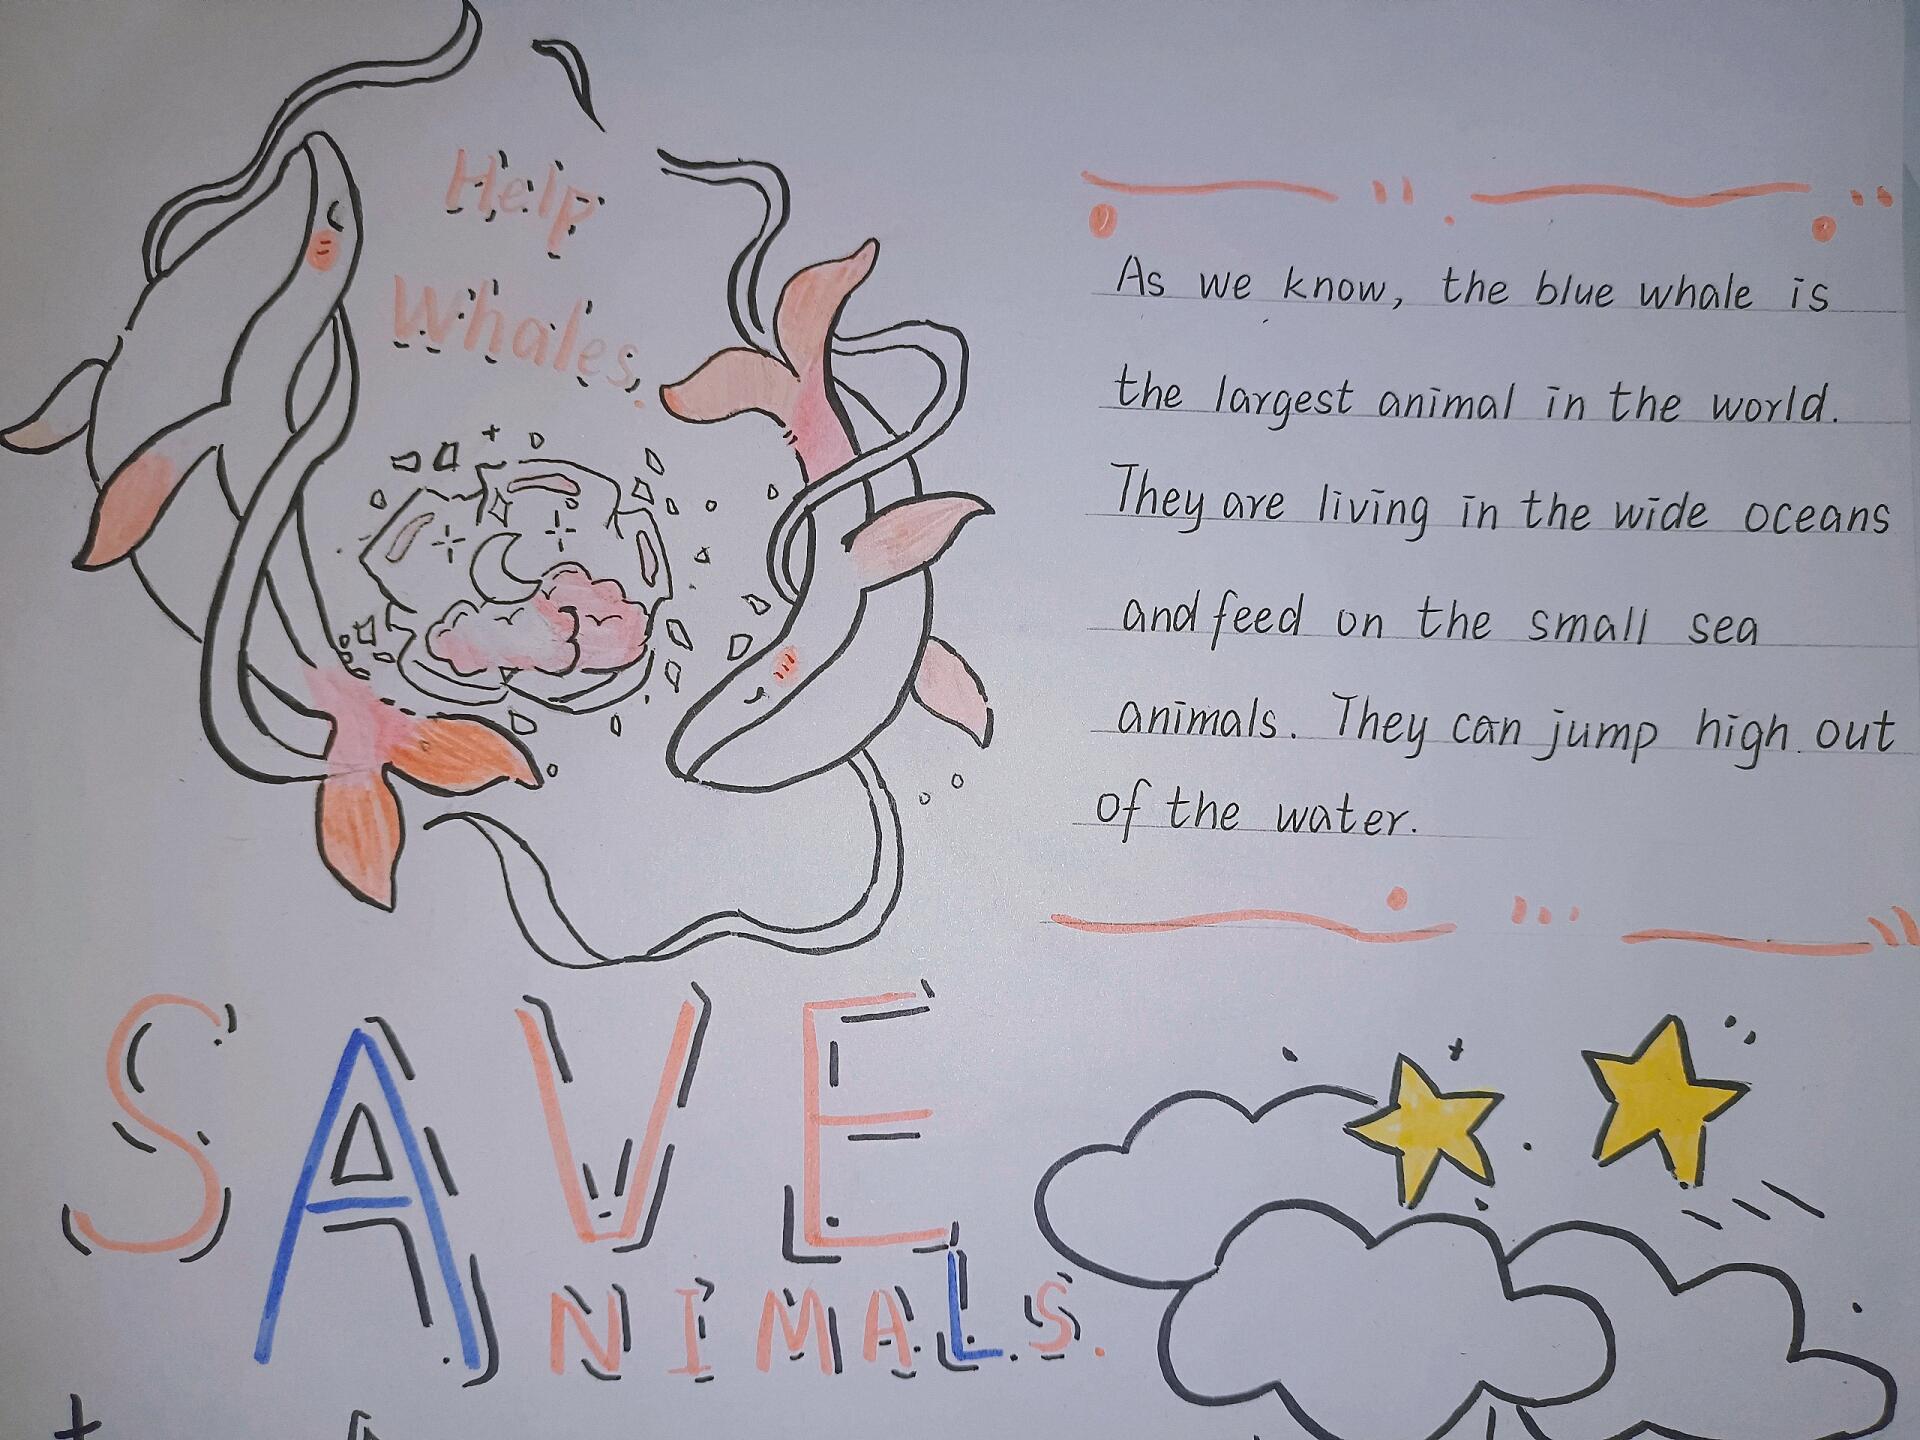 Help
Whales.
As we know, the blue whale is
the largest animal in the world.
They are living in the wide oceans
and feed on the small sea
animals. They can jump high out
of the water.
SAVE
ANIMALS.